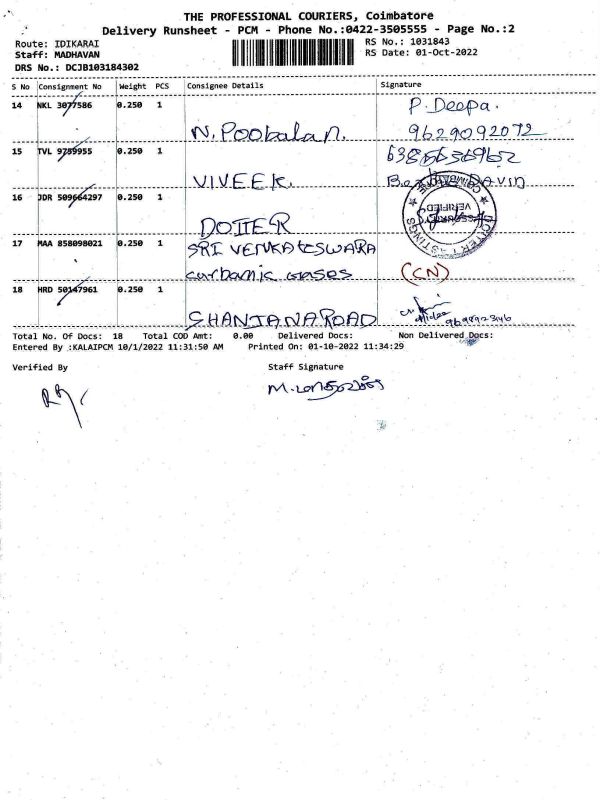 THE PROFESSIONAL COURIERS, Coimbatore
Delivery Runsheet - PCM - Phone No.:0422-3505555 - Page No.:2
Route: IDIKARAI
Staff: MADHAVAN
DRS No.: DCJB103184302
RS No.: 1031843
RS Date: 01-Oct-2022
S No Consignment No Weight PCS Consignee Details Signature
14 NKL 3077586 0.250 1 P. Deepa.
N. Poobalan. 9629092072
15 TVL 9789955 0.250 1
VIVEEK.
16 JDR 509664297 0.250 1
DOTTER
17 MAA 858098021 0.250 1 SRI VENKATESWARA
carbamic Gases (CN)
18 HRD 50147961 0.250 1
SHANJANA ROAD
Total No. Of Docs: 18 Total COD Amt: 0.00 Delivered Docs: Non Delivered Docs:
Entered By :KALAIPCM 10/1/2022 11:31:50 AM Printed On: 01-10-2022 11:34:29
Verified By Staff Signature